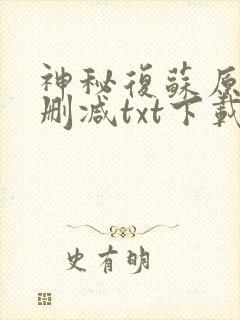 神秘復蘇原
刪減txt下載
史有明